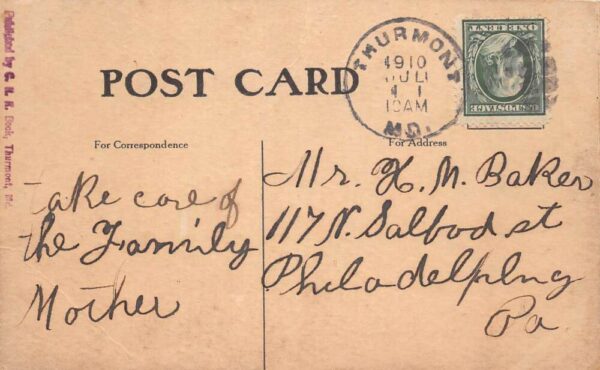 Published by C. H. K. Book, Thurmont, Md.
POST CARD
THURMONT
1910
JUL
1
10AM
MD.
ONE CENT
U.S. POSTAGE
For Correspondence
For Address
Take care of
the Family
Mother
Mr. H. M. Baker
117 N. Salbod st
Philadelphng
Pa